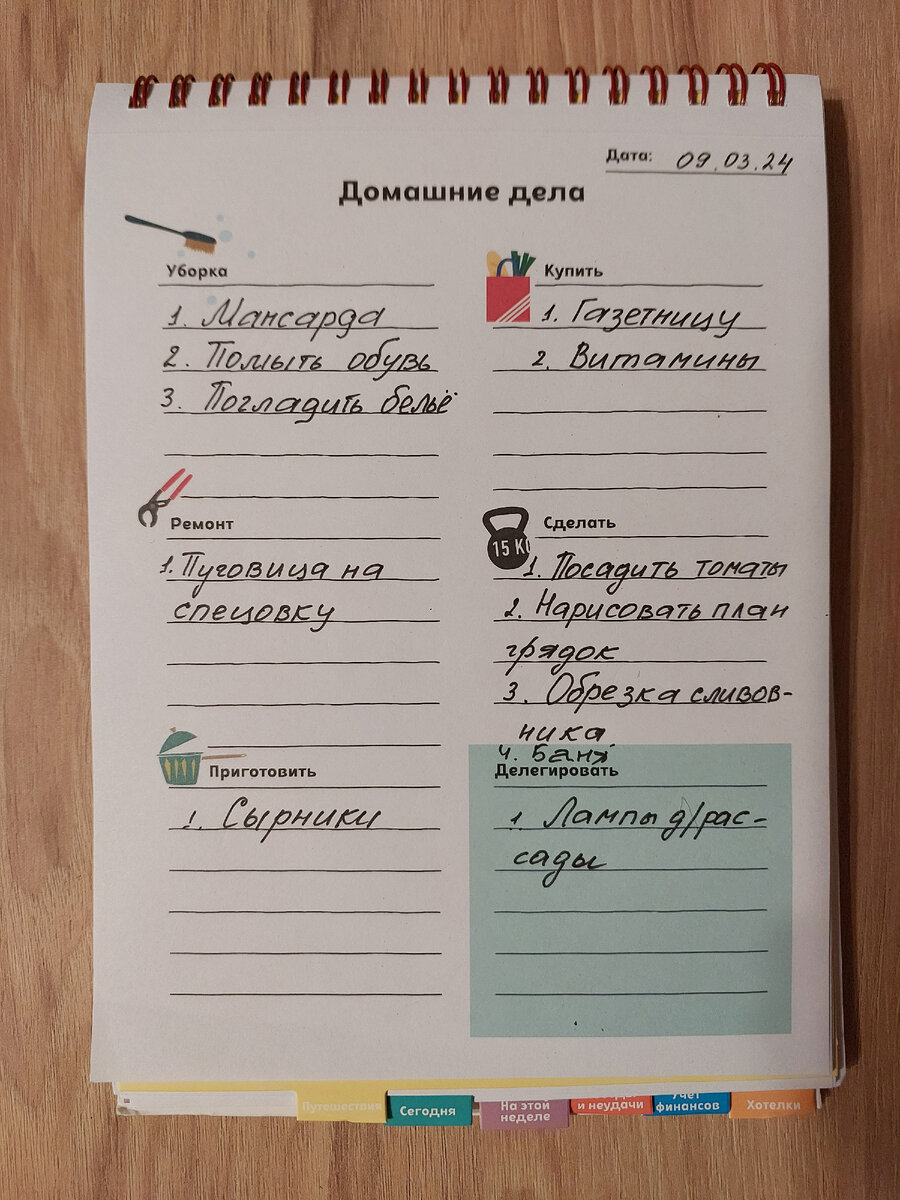 Дата: 09.03.24
Домашние дела
Уборка
1. Мансарда
2. Помыть обувь
3. Погладить бельё
Купить
1. Газетницу
2. Витамины
Ремонт
1. Пуговица на
спецовку
Сделать
15 К
1. Посадить томаты
2. Нарисовать план
грядок
3. Обрезка сливов-
ника
4. Баня
Приготовить
1. Сырники
Делегировать
1 Лампы д/рас-
сады
Путешествия
Сегодня
На этой
неделе
и неудачи
Учет
финансов
Хотелки